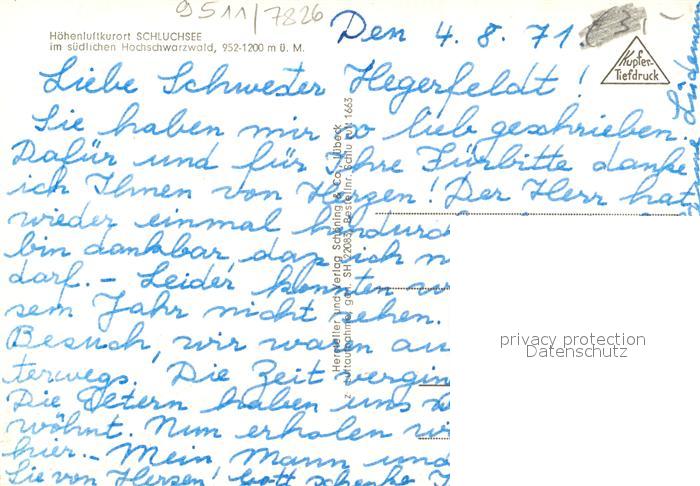 9511/7826
Höhenluftkurort SCHLUCHSEE
im südlichen Hochschwarzwald, 952-1200 m ü. M.
Den 4. 8. 71.
Kupfer-
Tiefdruck
Liebe Schwester Hegerfeldt!
Sie haben mir so lieb geschrieben.
Dafür und für Ihre Fürbitte danke
ich Ihnen von Herzen! Der Herr hat
wieder einmal hindurch
bin dankbar, daß ich
darf. – Leider konnten
sem Jahr nicht sehen.
Besuch, wir waren
terwegs. Die Zeit vergin
Die Eltern haben uns
wöhnt. Nun erholen
hier. – Mein Mann und
Sie von Herzen! Gott schenke
Hersteller und Verlag Schöning & Co., Lübeck
Luftaufnahme, SH Bestellnr. Schlu 1663
privacy protection
Datenschutz